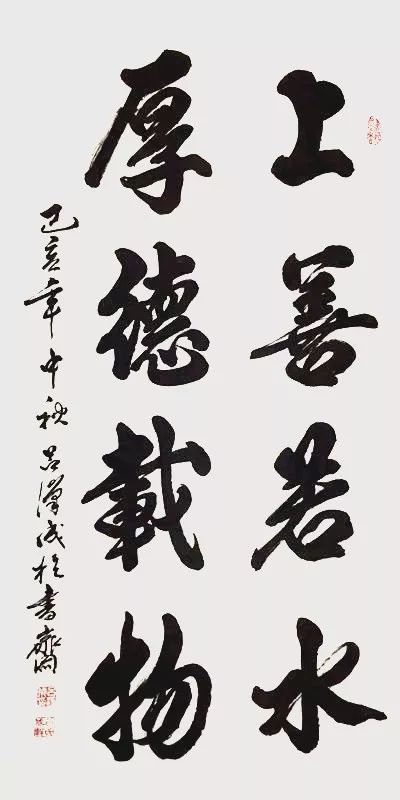 上善若水
厚德載物
己亥年中秋吕漢成於書齋